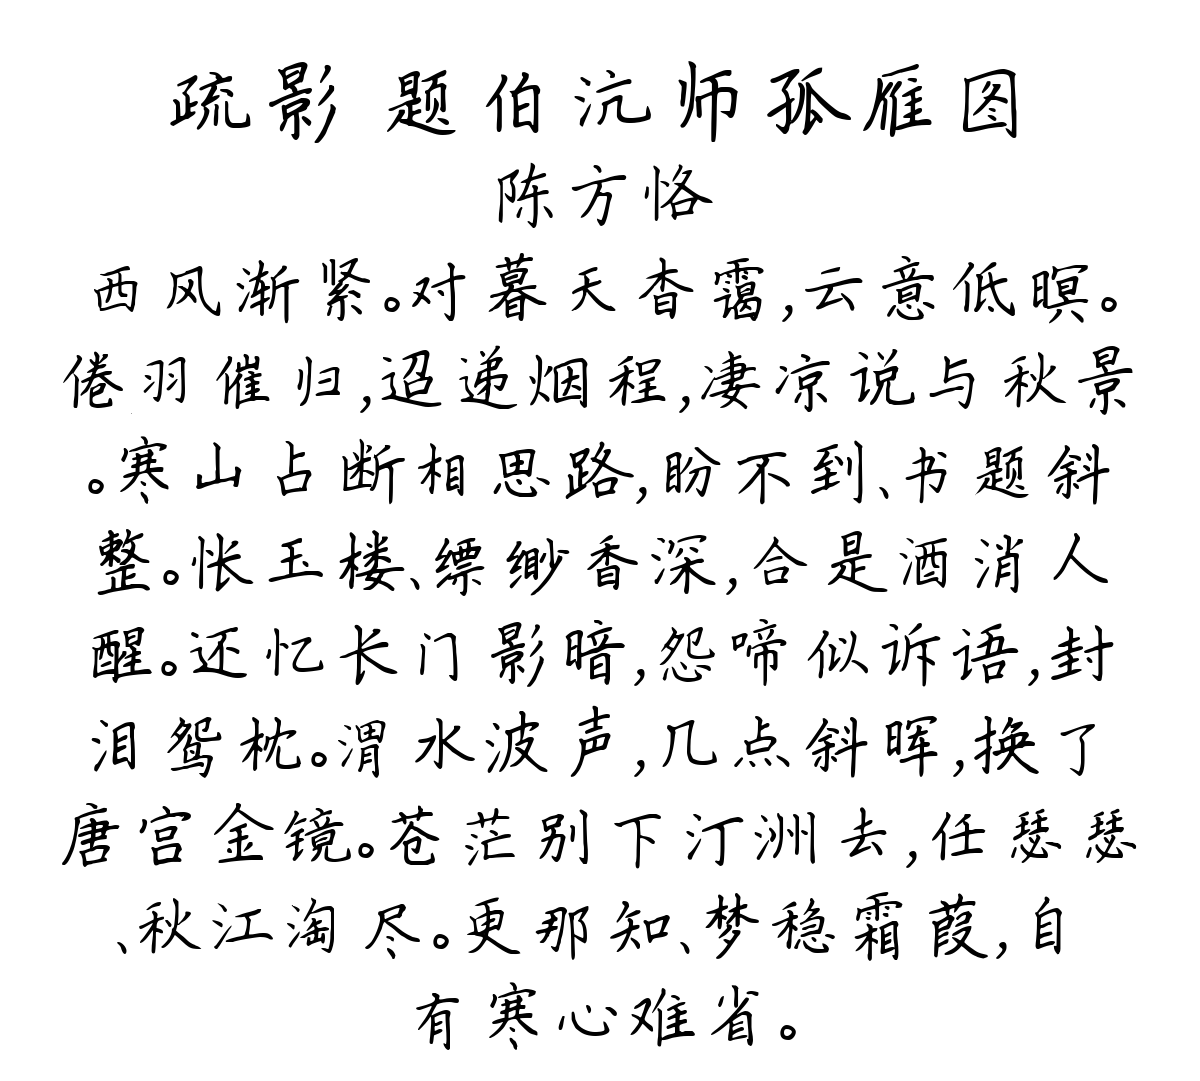 疏影 题伯沆师孤雁图
陈方恪
西风渐紧。对暮天杳霭,云意低暝。
倦羽催归,迢递烟程,凄凉说与秋景
。寒山占断相思路,盼不到、书题斜
整。怅玉楼、缥缈香深,合是酒消人
醒。还忆长门影暗,怨啼似诉语,封
泪鸳枕。渭水波声,几点斜晖,换了
唐宫金镜。苍茫别下汀洲去,任瑟瑟
、秋江淘尽。更那知、梦稳霜葭,自
有寒心难省。